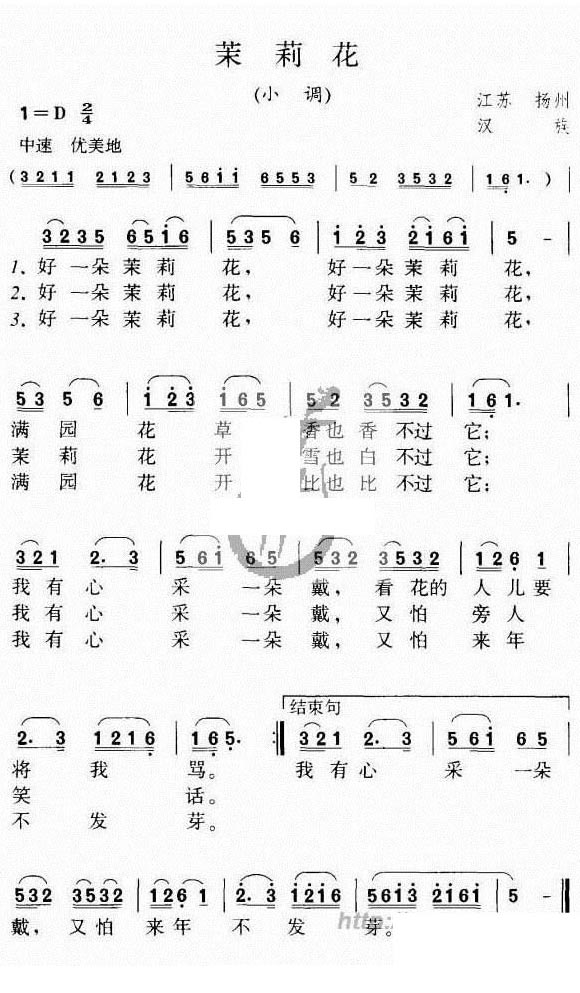 茉 莉 花
(小 调)
1=D 2/4
江苏 扬州
汉 族
中速 优美地
(3211 2123 | 56ii 6535 | 52 3532 | 161. )
3235 65i6 | 535 6 | i 2̇3̇ 2̇i6i | 5 - |
1. 好一朵茉莉 花， 好一朵茉莉 花，
2. 好一朵茉莉 花， 好一朵茉莉 花，
3. 好一朵茉莉 花， 好一朵茉莉 花，
53 5 6 | i 2̇3̇ i65 | 52 3532 | 161. |
满 园 花 草 香也香 不过 它；
茉 莉 花 开 雪也白 不过 它；
满 园 花 开 比也比 不过 它；
321 2. 3 | 56i 65 | 532 3532 | 126 1 |
我有心 采 一朵 戴， 看花的 人儿要
我有心 采 一朵 戴， 又 怕 旁人
我有心 采 一朵 戴， 又 怕 来年
结束句
2. 3 1216 | 165. :|| 321 2. 3 | 56i 65 |
将 我 骂。 我有心 采 一朵
笑 话。
不 发 芽。
532 3532 | 126 1 | 2̇. 3̇ i2̇i6 | 56i3̇ 2̇i6i | 5 - ||
戴， 又怕 来年 不 发 芽。
http: